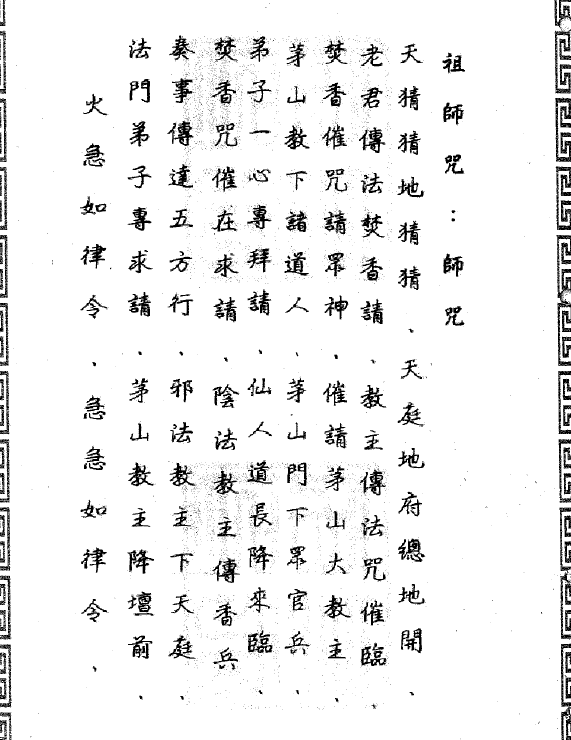 祖師咒：師咒
天猜猜地猜猜、天庭地府總地開、
老君傳法焚香請、教主傳法咒催臨、
焚香催咒請眾神、催請茅山大教主、
茅山教下諸道人、茅山門下眾官兵、
弟子一心專拜請、仙人道長降來臨、
焚香咒催在求請、陰法教主傳香兵
奏事傳達五方行、邪法教主下天庭、
法門弟子專求請、茅山教主降壇前、
火急如律令、急急如律令、